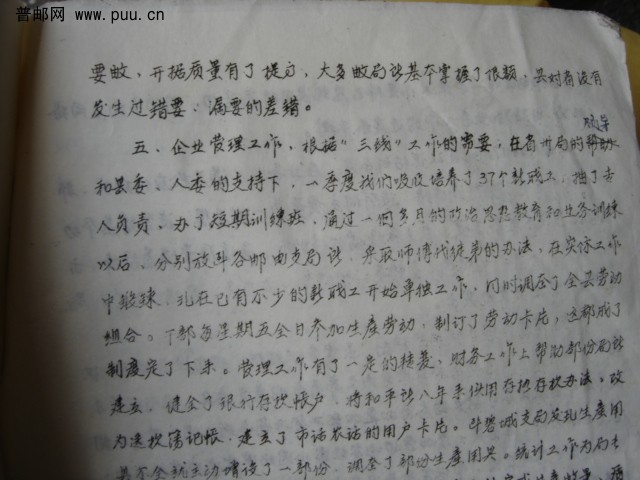 普邮网 www.puu.cn
要收，开据质量有了提高，大多邮局所基本掌握了限额，县对有没有
发生过错要、漏要的差错。
领导
五、企业管理工作，根据“三线”工作的需要，在省州局的帮助
和县委、人委的支持下，一季度我们吸收培养了37个新职工，抽了专
人负责，办了短期训练班，通过一个多月的政治思想教育和业务训练
以后，分别放到各邮电支局所，采取师傅代徒弟的办法，在实际工作
中锻练，现在已有不少的新职工开始单独工作，同时调正了全县劳动
组合。干部每星期五全日参加生产劳动，制订了劳动卡片，这都成了
制度定了下来。管理工作有了一定的转变，财务工作上帮助部份局所
建立、健全了银行存款帐户，将和平所八年来使用存折存款办法，改
为送款簿记帐，建立了市话农话的用户卡片。斗碧城支局及瓦生产用
具不全就主动增设了一部份，调正了部份生产用具。统计工作为局专